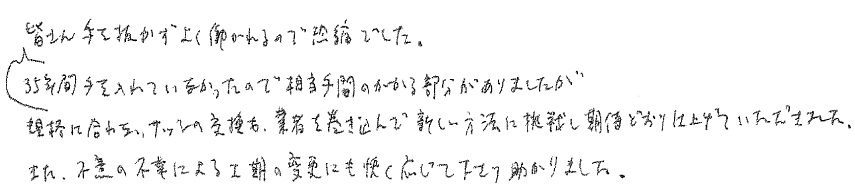 皆さん手を抜かずよく働かれるので恐縮でした。
35年間手を入れていなかったので相当手間のかかる部分がありましたが
規格に合わない、サッシの交換も、業者を巻き込んで新しい方法に挑戦し期待どおり仕上げていただきました。
また、不意の不幸による工期の変更にも快く応じて下さり助かりました。